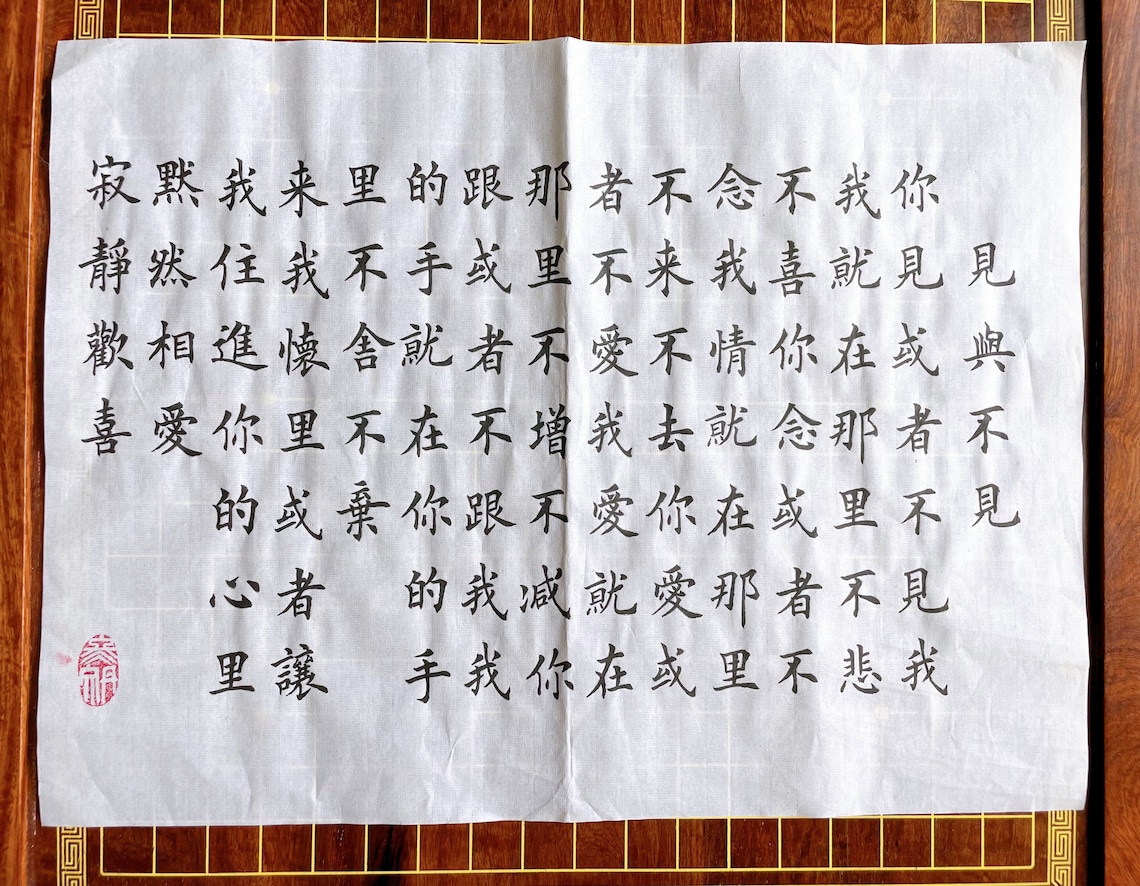 見與不見
你見或者不見我
我就在那里不悲
不喜你念或者不
念我情就在那里
不来不去你愛或
者不愛我愛就在
那里不增不减你
跟或者不跟我我
的手就在你的手
里不舍不棄
来我懷里或者讓
我住進你的心里
默然相愛
寂靜歡喜